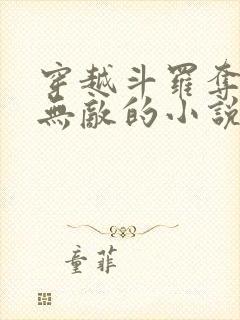 穿越斗羅奪
無敵的小説
童菲